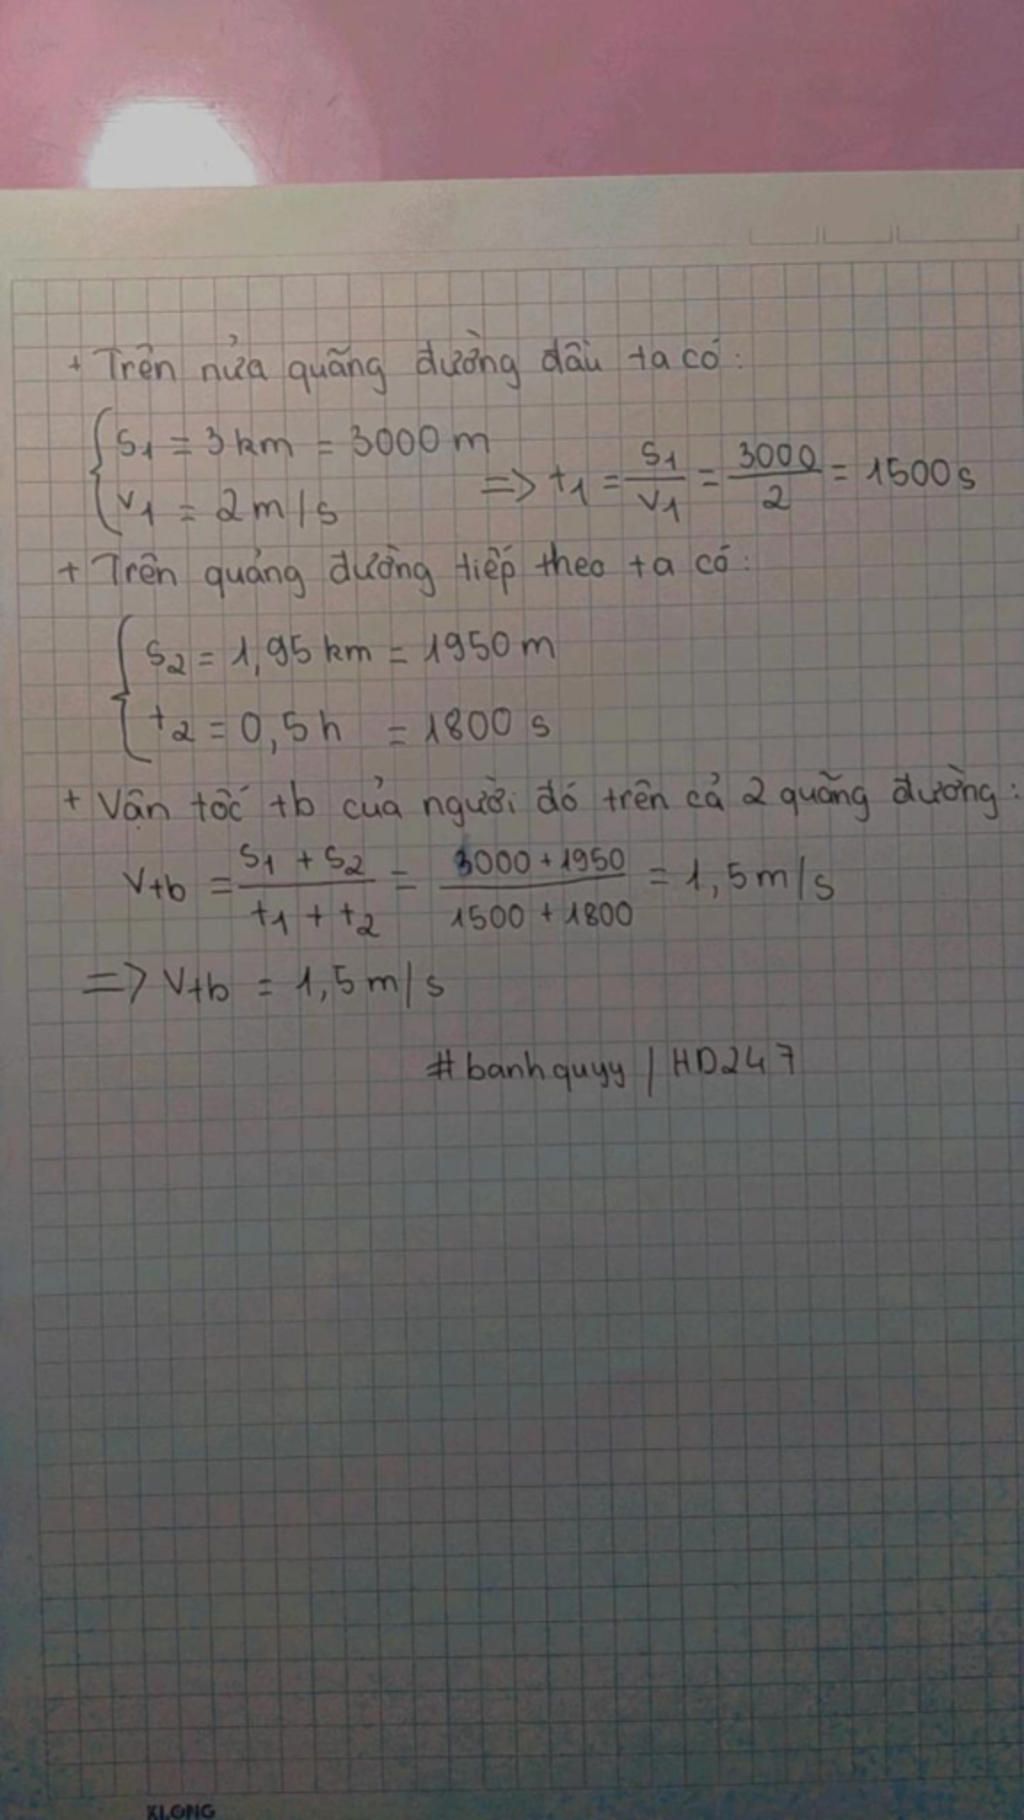 + Trên nửa quãng đường đầu ta có:
{ S₁ = 3km = 3000m
{ V₁ = 2m/s => t₁ = S₁/V₁ = 3000/2 = 1500s
+ Trên quảng đường tiếp theo ta có:
{ S₂ = 1,95km = 1950m
{ t₂ = 0,5h = 1800s
+ Vận tốc tb của người đó trên cả 2 quãng đường:
Vtb = (S₁ + S₂)/(t₁ + t₂) = (3000 + 1950)/(1500 + 1800) = 1,5m/s
=> Vtb = 1,5m/s
#banhquyy / HD247
KLONG